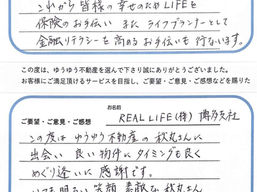 これから皆様の幸せのためLIFEを
保険のお手伝い また ライフプランナーとして
金融リテラシーを高めるお手伝いも行ないます。
この度は、ゆうゆう不動産を選んで下さり誠にありがとうございました。
お客様にご満足頂けるサービスを目指し、ご要望・ご意見・ご感想などを賜りた
お名前
REAL LIFE(株) 博多支社
ご要望・ご意見・ご感想
この度は ゆうゆう不動産の 秋丸さんに
出会い 良い物件に タイミングも良く
めぐり逢いに 感謝です。
いつも明るい笑顔 素敵な 秋丸さん